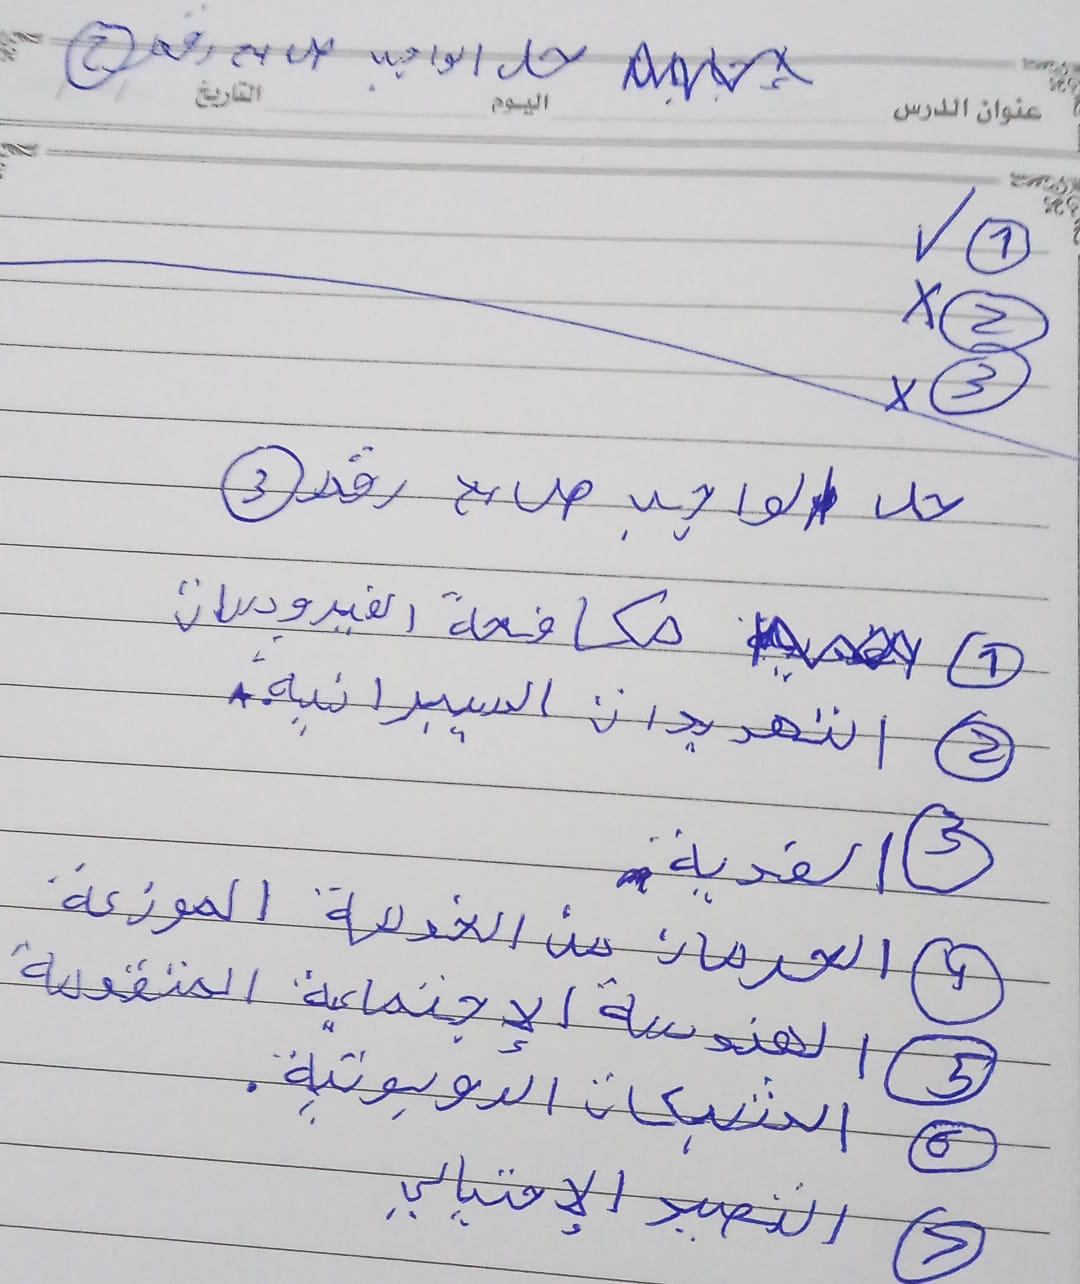 حل الواجب صح رقم (2)
عنوان الدرس اليوم التاريخ
(1) ✓
(2) X
(3) X
حل الواجب صح رقم (3)
(1) مكافحة الفيروسات
(2) التهديدات السيبرانية.
(3) الفدية.
(4) الحرمان من الخدمة الموزعة.
(5) الهندسة الإجتماعية المتقدمة
(6) الشبكات الروبوتية.
(7) التصيد الإحتيالي